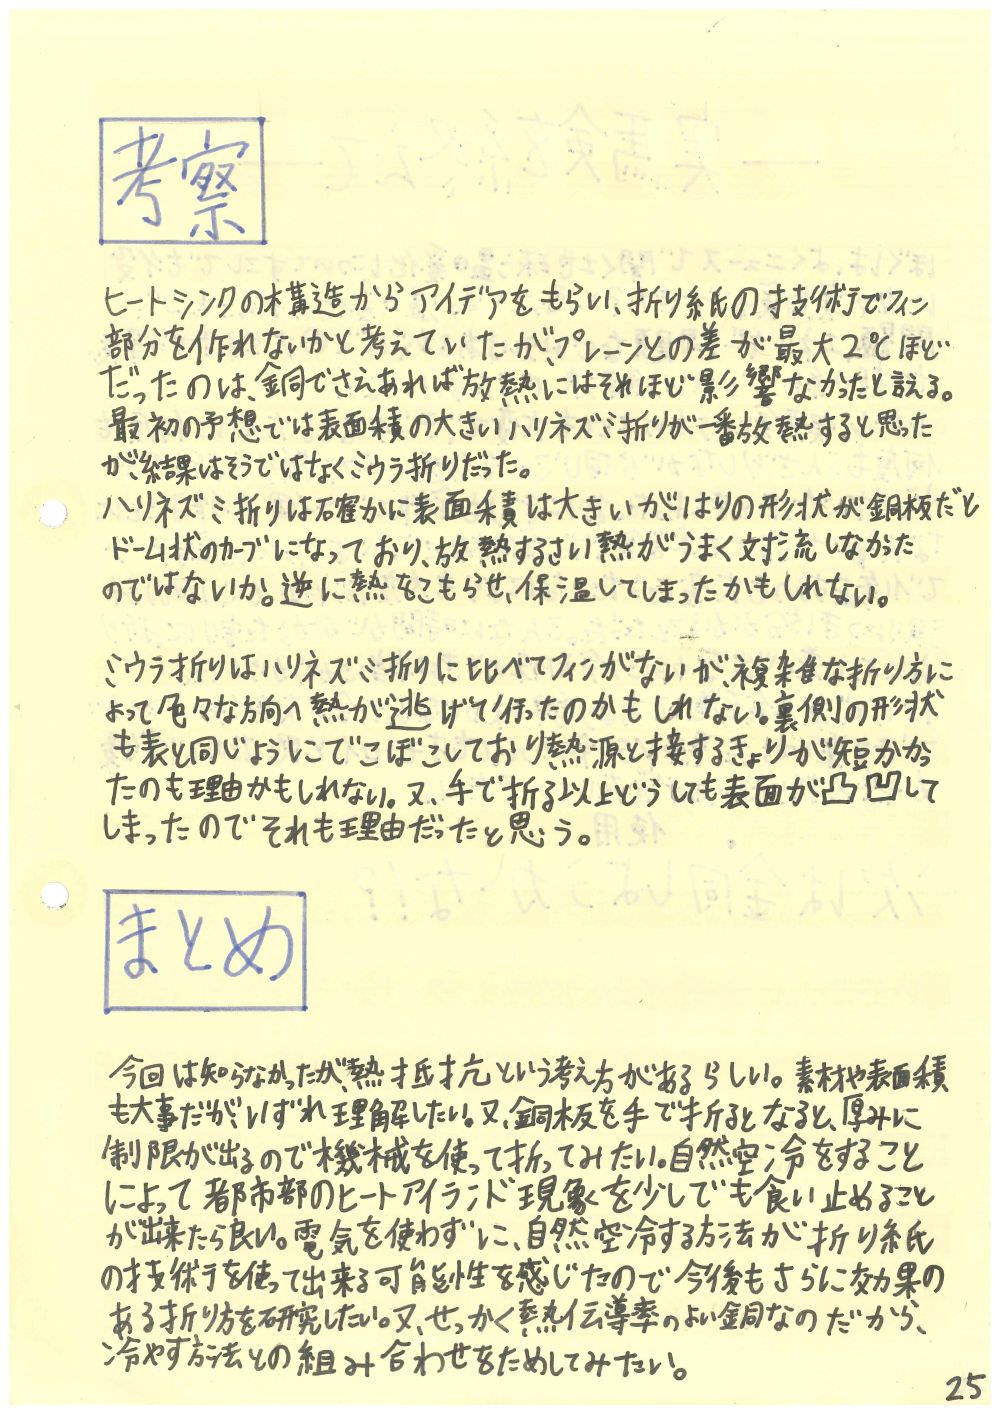 考察
ヒートシンクの構造からアイデアをもらい、折り紙の技術でフィン
部分を作れないかと考えていたが、プレーンとの差が最大2℃ほど
だったのは、銅でさえあれば放熱にはそれほど影響なかったと言える。
最初の予想では表面積の大きいハリネズミ折りが一番放熱すると思った
が、結果はそうではなくミウラ折りだった。
ハリネズミ折りは確かに表面積は大きいが、はりの形状が銅板だと
ドーム状のカーブになっており、放熱するさい熱がうまく対流しなかった
のではないか。逆に熱をこもらせ、保温してしまったかもしれない。
ミウラ折りはハリネズミ折りに比べてフィンがないが、複雑な折り方に
よって色々な方向へ熱が逃げて行ったのかもしれない。裏側の形状
も表と同じようにでこぼこしており熱源と接するきょりが短かかっ
たのも理由かもしれない。又、手で折る以上どうしても表面が凸凹して
しまったのでそれも理由だったと思う。
まとめ
今回は知らなかったが、熱抵抗という考え方があるらしい。素材や表面積
も大事だが、いずれ理解したい。又、銅板を手で折るとなると、厚みに
制限が出るので機械を使って折ってみたい。自然空冷をすること
によって都市部のヒートアイランド現象を少しでも食い止めること
が出来たら良い。電気を使わずに、自然空冷する方法が折り紙
の技術を使って出来る可能性を感じたので今後もさらに効果の
ある折り方を研究したい。又、せっかく熱伝導率のよい銅なのだから、
冷やす方法との組み合わせをためしてみたい。
25